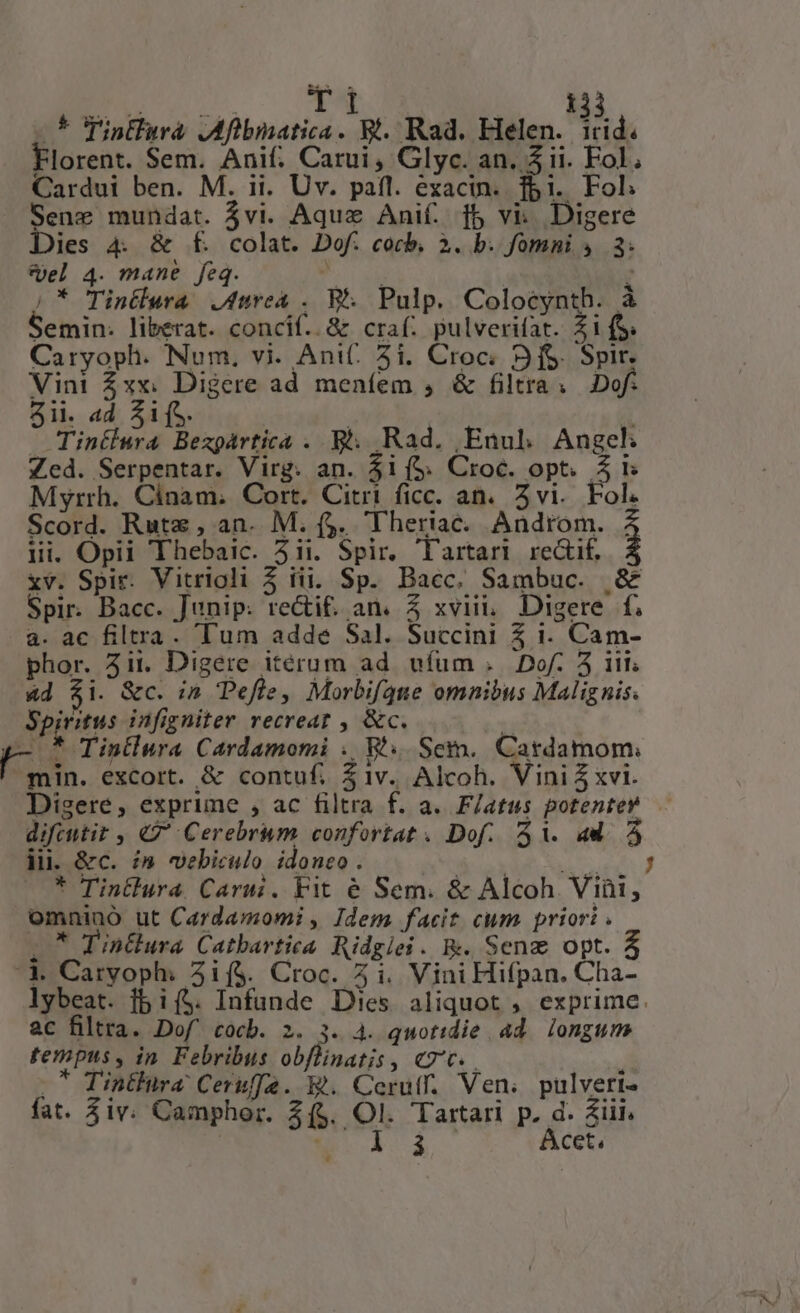 T i 133
* Tinctura Aſthmatica. ℞. Rad. Helen. irid.
Florent. Sem. Aniſ. Carui, Glyc. an. ʒ ii. Fol.
Cardui ben. M. ii. Uv. paſſ. exacin. ℔ i. Fol.
Senæ mundat. ℥ vi. Aquæ Aniſ. ℔ vi. Digere
Dies 4. & f. colat. Doſ. coch. 2. h. ſomni, 3.
vel 4. mane ſeq.
* Tinctura Aurea. ℞. Pulp. Colocynth. à
Semin. liberat. conciſ. & craſ. pulveriſat. ℥ i ß.
Caryoph. Num. vi. Aniſ. ʒ i. Croc. ℈ ß. Spir.
Vini ℥ xx. Digere ad menſem, & filtra. Doſ.
ʒ ii. ad ℥ i ß.
Tinctura Bezoartica. ℞. Rad. Enul. Angel.
Zed. Serpentar. Virg. an. ℥ i ß. Croc. opt. ℥ i.
Myrrh. Cinam. Cort. Citri ſicc. an. ʒ vi. Fol.
Scord. Rutæ, an. M. ß. Theriac. Androm. ℥
iii. Opii Thebaic. ʒ ii. Spir. Tartari rectif. ℥
xv. Spir. Vitrioli ℥ iii. Sp. Bacc. Sambuc. &
Spir. Bacc. Junip. rectif. an. ℥ xviii. Digere ſ.
a. ac filtra. Tum adde Sal. Succini ℥ i. Cam-
phor. ʒ ii. Digere iterum ad uſum. Doſ. ʒ iii.
ad ℥ i. &c. in Peſte, Morbiſque omnibus Malignis.
Spiritus inſigniter recreat, &c.
* Tinctura Cardamomi. ℞. Sem. Cardamom.
min. excort. & contuſ. ℥ iv. Alcoh. Vini ℥ xvi.
Digere, exprime, ac filtra ſ. a. Flatus potenter
diſcutit, & Cerebrum confortat. Doſ. ʒ i. ad ʒ
iii. &c. in vehiculo idoneo.
* Tinctura Carui. Fit è Sem. & Alcoh. Vini,
omninò ut Cardamomi, Idem facit cum priori.
* Tinctura Cathartica Ridglei. ℞. Senæ opt. ℥
i. Caryoph. ʒ i ß. Croc. ʒ i. Vini Hiſpan. Cha-
lybeat. ℔ i ß. Infunde Dies aliquot, exprime
ac filtra. Doſ. coch. 2. 3. 4. quotidie ad longum
tempus, in Febribus obſtinatis, &c.
* Tinctura Ceruſſæ. ℞. Ceruſſ. Ven. pulveri-
ſat. ℥ iv. Camphor. ℥ ß. Ol. Tartari p. d. ℥ iii.
l 3 Acet.